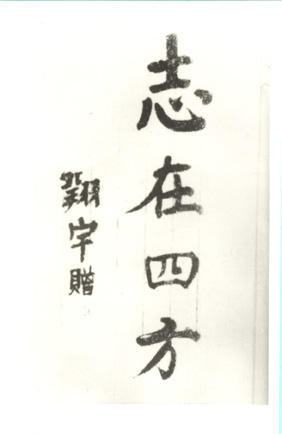 志在四方
翔宇赠